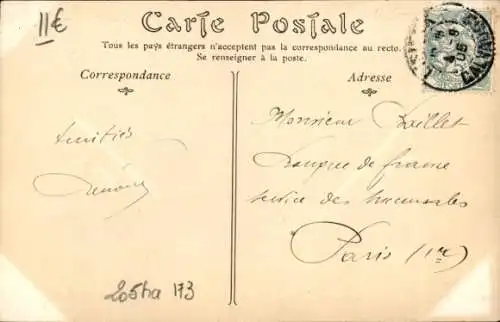 11€
Carte Postale
Tous les pays étrangers n'acceptent pas la correspondance au recto.
Se renseigner à la poste.
Correspondance
Adresse
Monsieur Taillet
Banque de france
Service des Immeubles
Paris (1er)
Amitiés
205ha 173